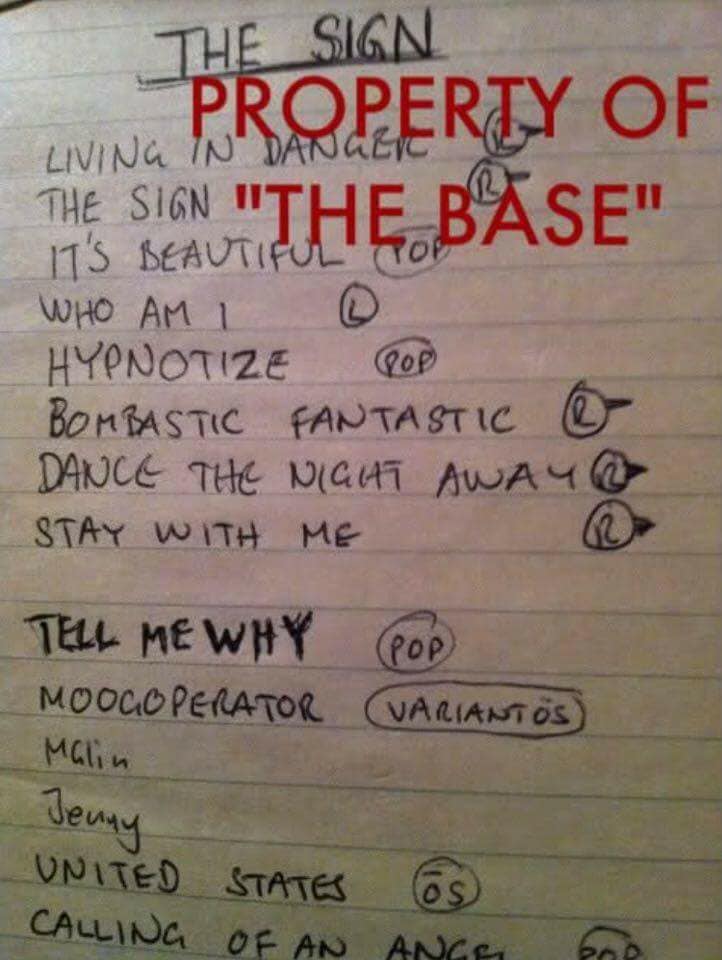 THE SIGN
PROPERTY OF
LIVING IN DANGER R
"THE BASE"
THE SIGN R
IT'S BEAUTIFUL POP
WHO AM I L
HYPNOTIZE POP
BOMBASTIC FANTASTIC R
DANCE THE NIGHT AWAY R
STAY WITH ME R
TELL ME WHY POP
MOOGOPERATOR VARIANT ÖS
Malin
Jenny
UNITED STATES ÖS
CALLING OF AN ANGEL POP